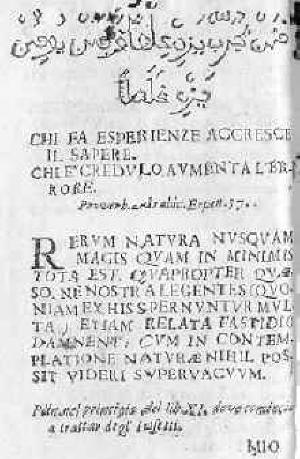 CHI FA ESPERIENZE ACCRESCE
IL SAPERE.
CHI E' CREDULO AUMENTA L'ER-
RORE.
Proverb. Arabic. Erpen. 57.
RERVM NATVRA NVSQVAM
MAGIS QVAM IN MINIMIS
TOTA EST. QVAPROPTER QVÆ-
SO, NE NOSTRA LEGENTES (QVO-
NIAM EX HIS SPERNVNTVR MVL-
TA) ETIAM RELATA FASTIDIO
DAMNENT; CVM IN CONTEM-
PLATIONE NATVRÆ NIHIL POS-
SIT VIDERI SVPERVACVVM.
Plin. nel principio del lib. XI. dove comincia
a trattar degl' Insetti.
MIO